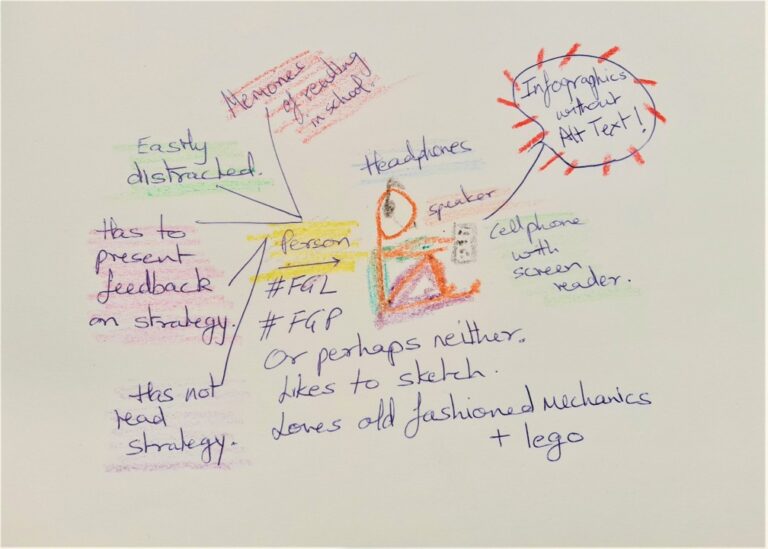 Memories
of reading
in school.
Easily
distracted.
Has to
present
feedback
on strategy.
Has not
read
strategy.
Person
#FGL
#FGP
Or perhaps neither.
Likes to sketch.
Loves old fashioned mechanics
+ lego
Headphones
speaker
Cellphone
with
screen
reader.
Infographics
without
Alt Text!